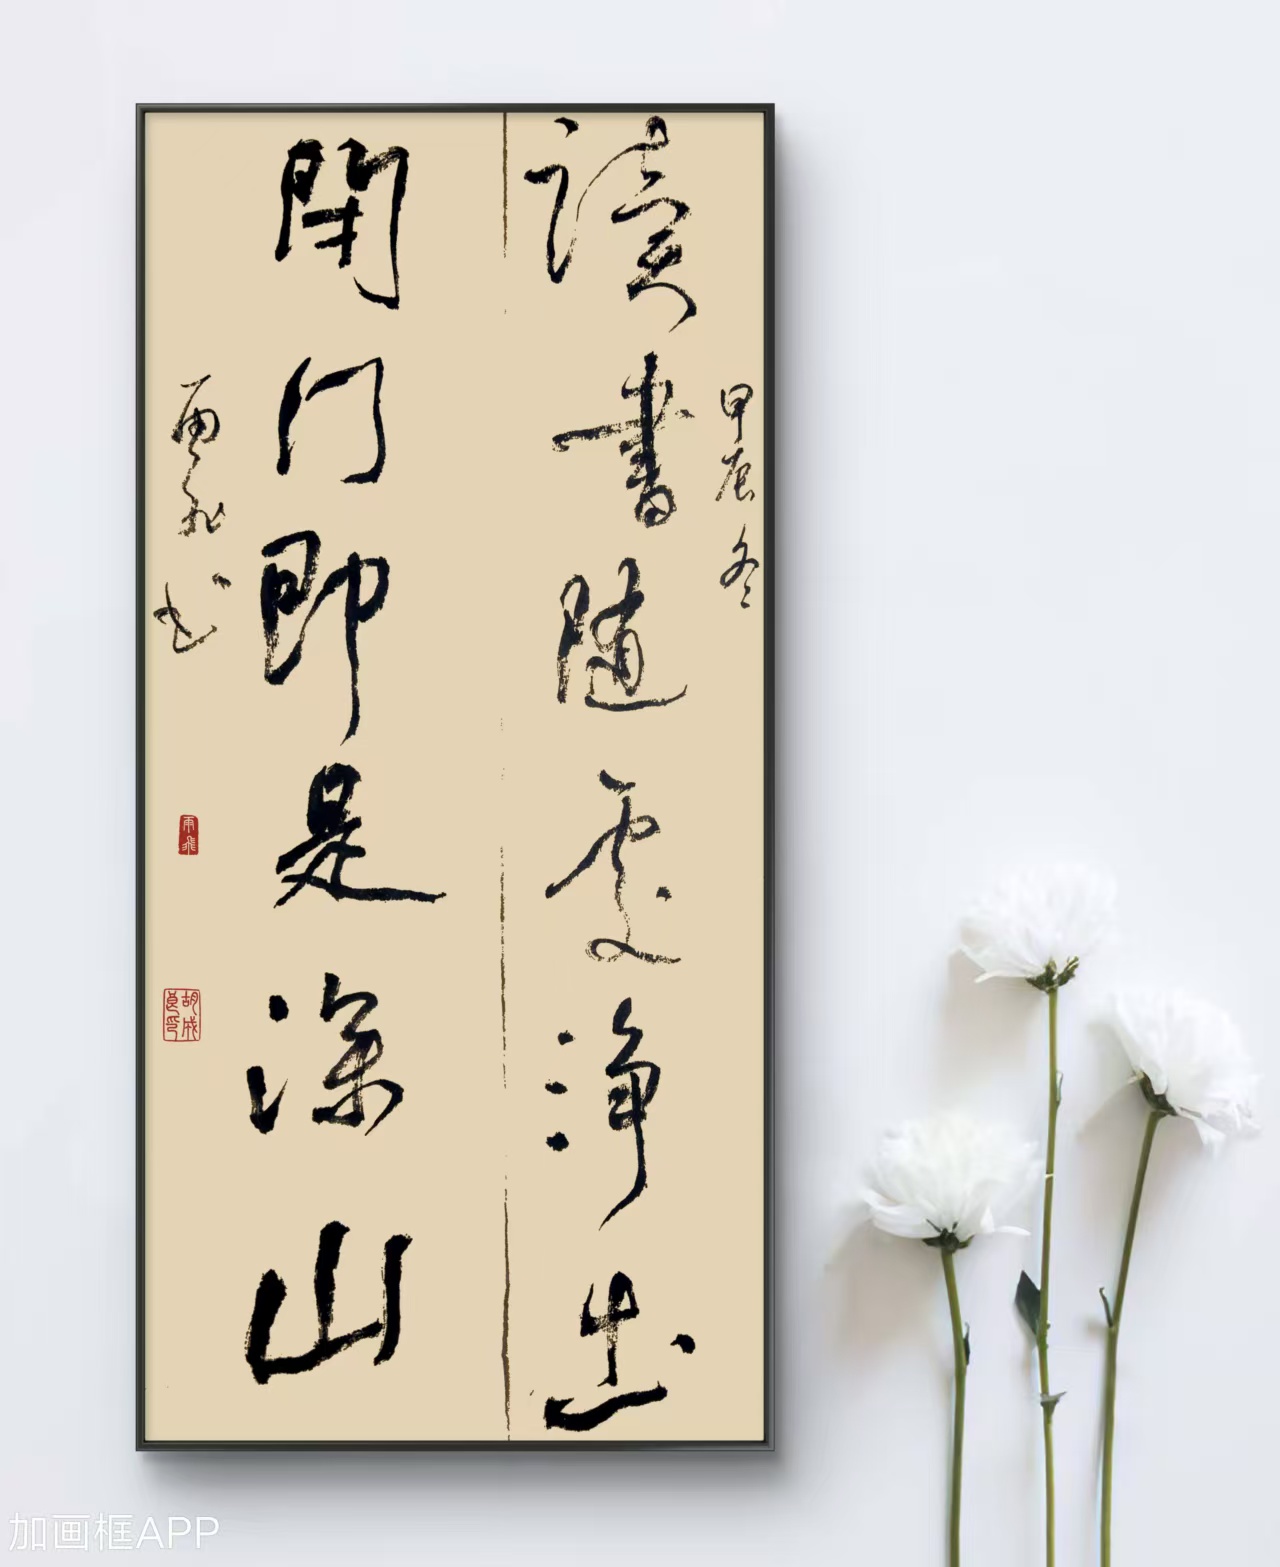 甲辰冬
讀書隨處淨土
閉門即是深山
雨飛书
雨飛
胡成良印
加画框APP